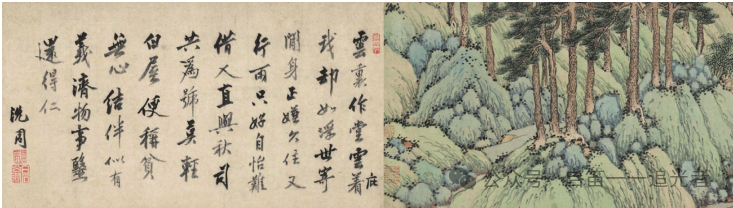 雲作堂雲著
庄
我却如浮世寄
閒身正嫌久住又
行雨只好自怡難
借人直與秋司
共為號莫輕
白屋便稱貧
無心結伴似有
義濟物事
還得仁
沈周
公众号·笛——追光者